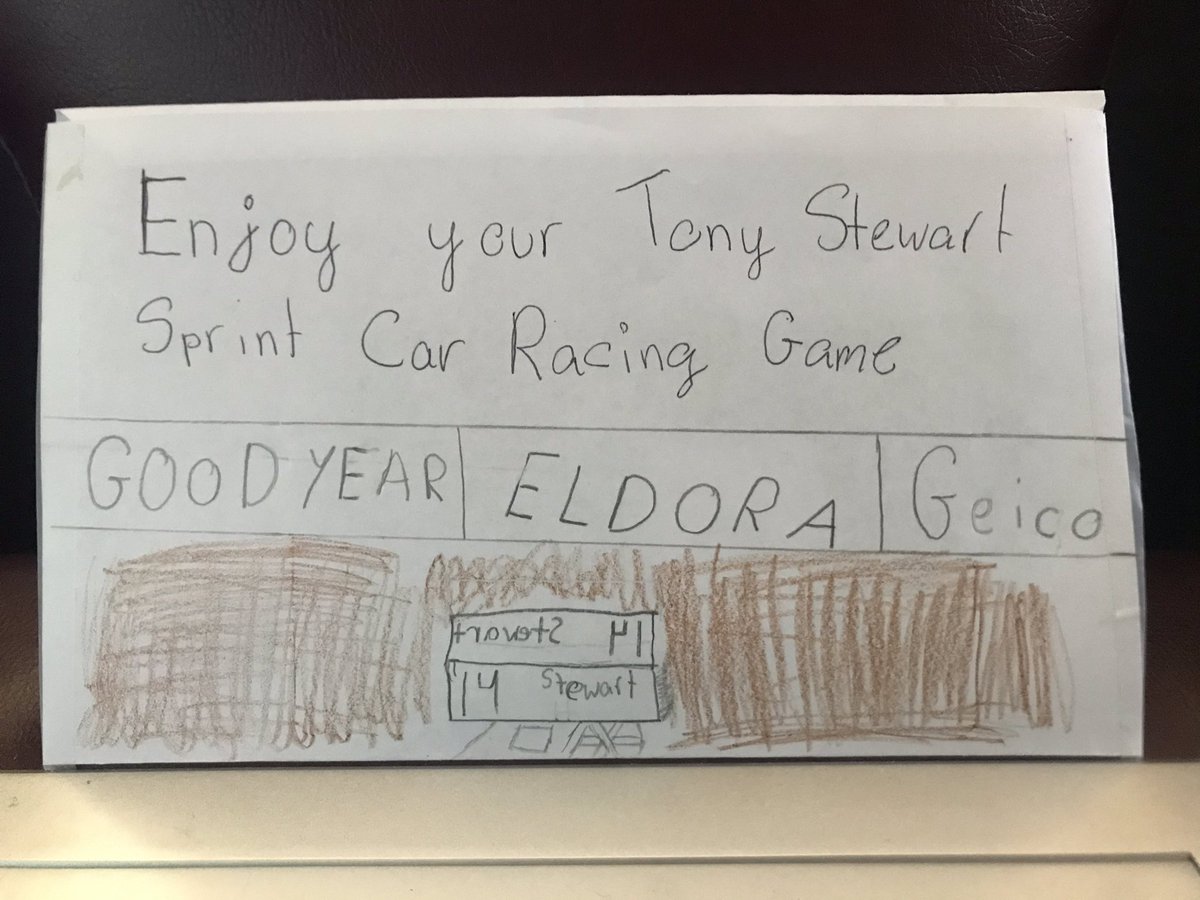 Enjoy your Tony Stewart
Sprint Car Racing Game
GOODYEAR ELDORA Geico
Stewart 14
14 Stewart